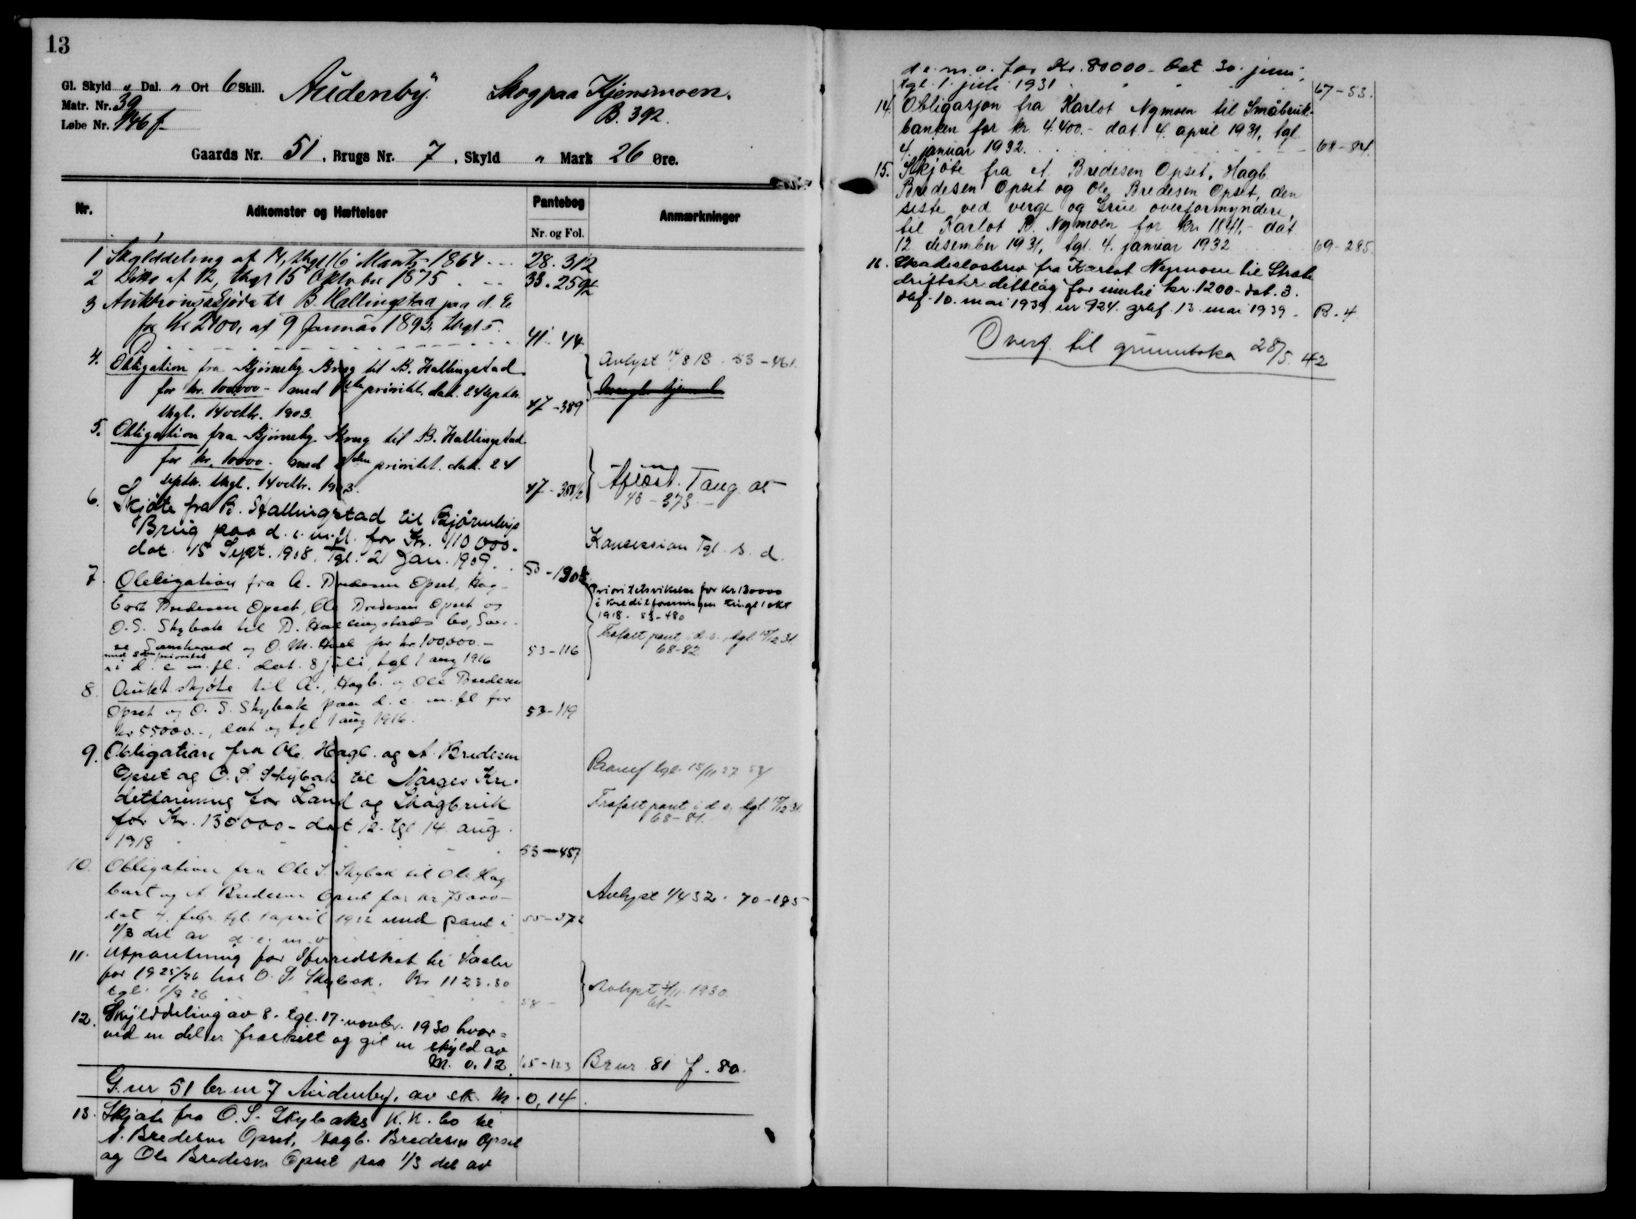 13
Gl. Skyld „ Dal. „ Ort 6 Skill. Audenby. Skog paa Kjensmoen.
Matr. Nr. 39 B. 392.
Løbe Nr. 146 f
Gaards Nr. 51, Brugs Nr. 7, Skyld „ Mark 26 Øre.
Nr. Adkomster og Hæftelser Pantebog Anmærkninger
Nr. og Fol.
1 Skylddeling af 14, thgl 16 Marts 1864 28. 312
2 Ditto af 12, thgl 15 Oktober 1875 33. 259
3 Auktionsskjøde til B. Hallingstad paa d. E.
for Kr 2400, af 9 Januar 1893, thgl 5.
41. 44
4. Obligation fra Bjørneby Brug til B. Hallingstad Avlyst 18 . 53-461
for kr. 100000 - med prioritet, dat. 24 septbr.
thgl. 14 octbr. 1903. 47-389
5. Obligation fra Bjørneby Brug til B. Hallingstad
for kr. 10000. med prioritet. dat. 24
septbr. thgl. 14 octbr. 1903. 47- Aflæst. Tang. at
48-373.
6. Skjøte fra B. Hallingstad til Bjørneby
Brug paa d. e. m. fl. for Kr. 110 000.-
dat. 15 Sept. 1908. Tgl. 21 Jan. 1909. 50- Konsession Tgl. s. d.
7. Obligation fra A. Bredesen Opset, Hag-
bart Bredesen Opset, Ole Bredesen Opset og
O. S. Skybak til B. Hallingstads bo,
og O. M. for kr. 100,000.- 53-116
med prioritet
i d. e. m. fl. dat. 8 juli, tgl 1 aug 1916
Prioritetsvikelse for Kr 130000
i Kreditforeningen tingl 1 okt
1918. 53-480
Frafalt pant i d. e. tgl 31
68-82
8. Auktskjøte til A., Hagb. og Ole Bredesen
Opset og O. S. Skybak paa d. e. m. fl for
kr 55000.-, dat og tgl 1 aug 1916. 53-119
9. Obligation fra Ole, Hagb. og A. Bredesen
Opset og O. S. Skybak til Norges Kre-
ditforening for Land og Skogbruk
for Kr. 130000 - dat 12. tgl 14 aug.
1918 53-457
Frafalt pant i d. e. tgl 31
68-81.
10. Obligation fra Ole S. Skybak til Ole Hag-
bart og A Bredesen Opset for kr 75000-
dat 4. febr. tgl. 1 april 1922 med pant i 55-372 Avlyst 1/4 32. 70-185
1/3 del av d. e. m. v
11. Utpantning for Herredskat til Vaaler
for 1925/26 hos O. S. Skybak. Kr 1123.30
tgl. 26 58 - Avlyst 1930.
61-
12. Skylddeling av 8. tgl. 17. novbr. 1930 hvor-
ved en del er fraskilt og git en skyld av
M. 0.12. 65-123 Brnr 81 f. 80.
G. nr 51 br. nr 7 Audenby, av sk. M. 0,14.
13. Skjøte fra O. S. Skybaks K. K. bo til
A. Bredesen Opset, Hagb. Bredesen Opset
og Ole Bredesen Opset paa 1/3 del av
d. e. m. v. for Kr. 80000 - Dat 30. juni,
tgl. 1. juli 1931 67-53.
14. Obligasjon fra Karlot Nymoen til Småbruk-
banken for kr. 4.400.- dat. 4. april 1931, tgl.
4. januar 1932. 68-84.
15. Skjøte fra A. Bredesen Opset, Hagb.
Bredesen Opset og Ole Bredesen Opset, den
siste ved verge og Grue overformynderi,
til Karlot R. Nymoen for kr. 1841,- dat
12 desember 1931, tgl. 4. januar 1932 69-285
16. Skadesløsbrev fra Karlot Nymoen til Skatt
for inntil kr. 1200 - dat. 3.
dbf. 10. mai 1939 nr 924. grbf. 13. mai 1939. B. 4
Overf. til grunnboka 28/5. 42